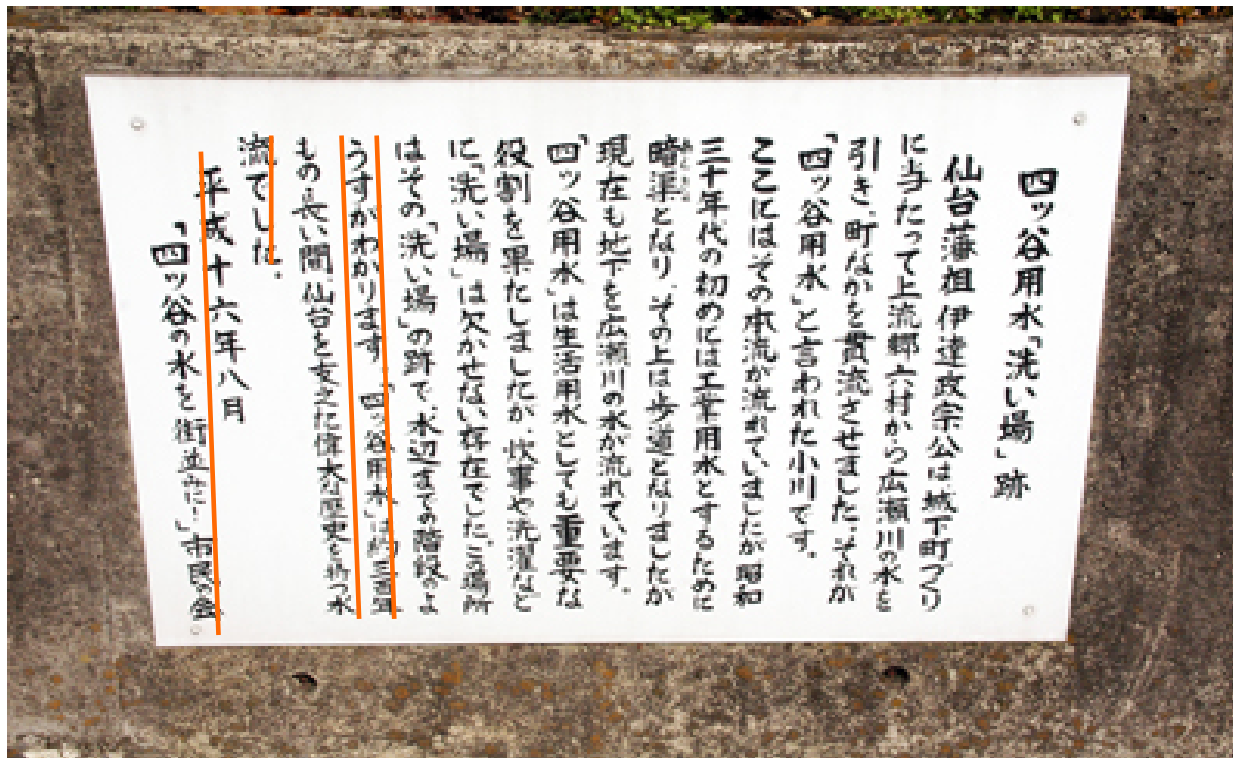 四ッ谷用水「洗い場」跡
仙台藩祖伊達政宗公は、城下町づくり
に当たって上流郷六村から広瀬川の水を
引き、町なかを貫流させました。それが
「四ッ谷用水」と言われた小川です。
ここにはその本流が流れていましたが昭和
三十年代の初めには工業用水とするために
暗渠となり、その上は歩道となりましたが
現在も地下を広瀬川の水が流れています。
「四ッ谷用水」は生活用水としても重要な
役割を果たしましたが、炊事や洗濯など
に「洗い場」は欠かせない存在でした。この場所
はその「洗い場」の跡で、水辺までの階段のよ
うすがわかります。「四ッ谷用水」は約三百年
もの長い間、仙台を支えた偉大な歴史を持つ水
流でした。
平成十六年八月
「四ッ谷の水を街並みに！」市民の会